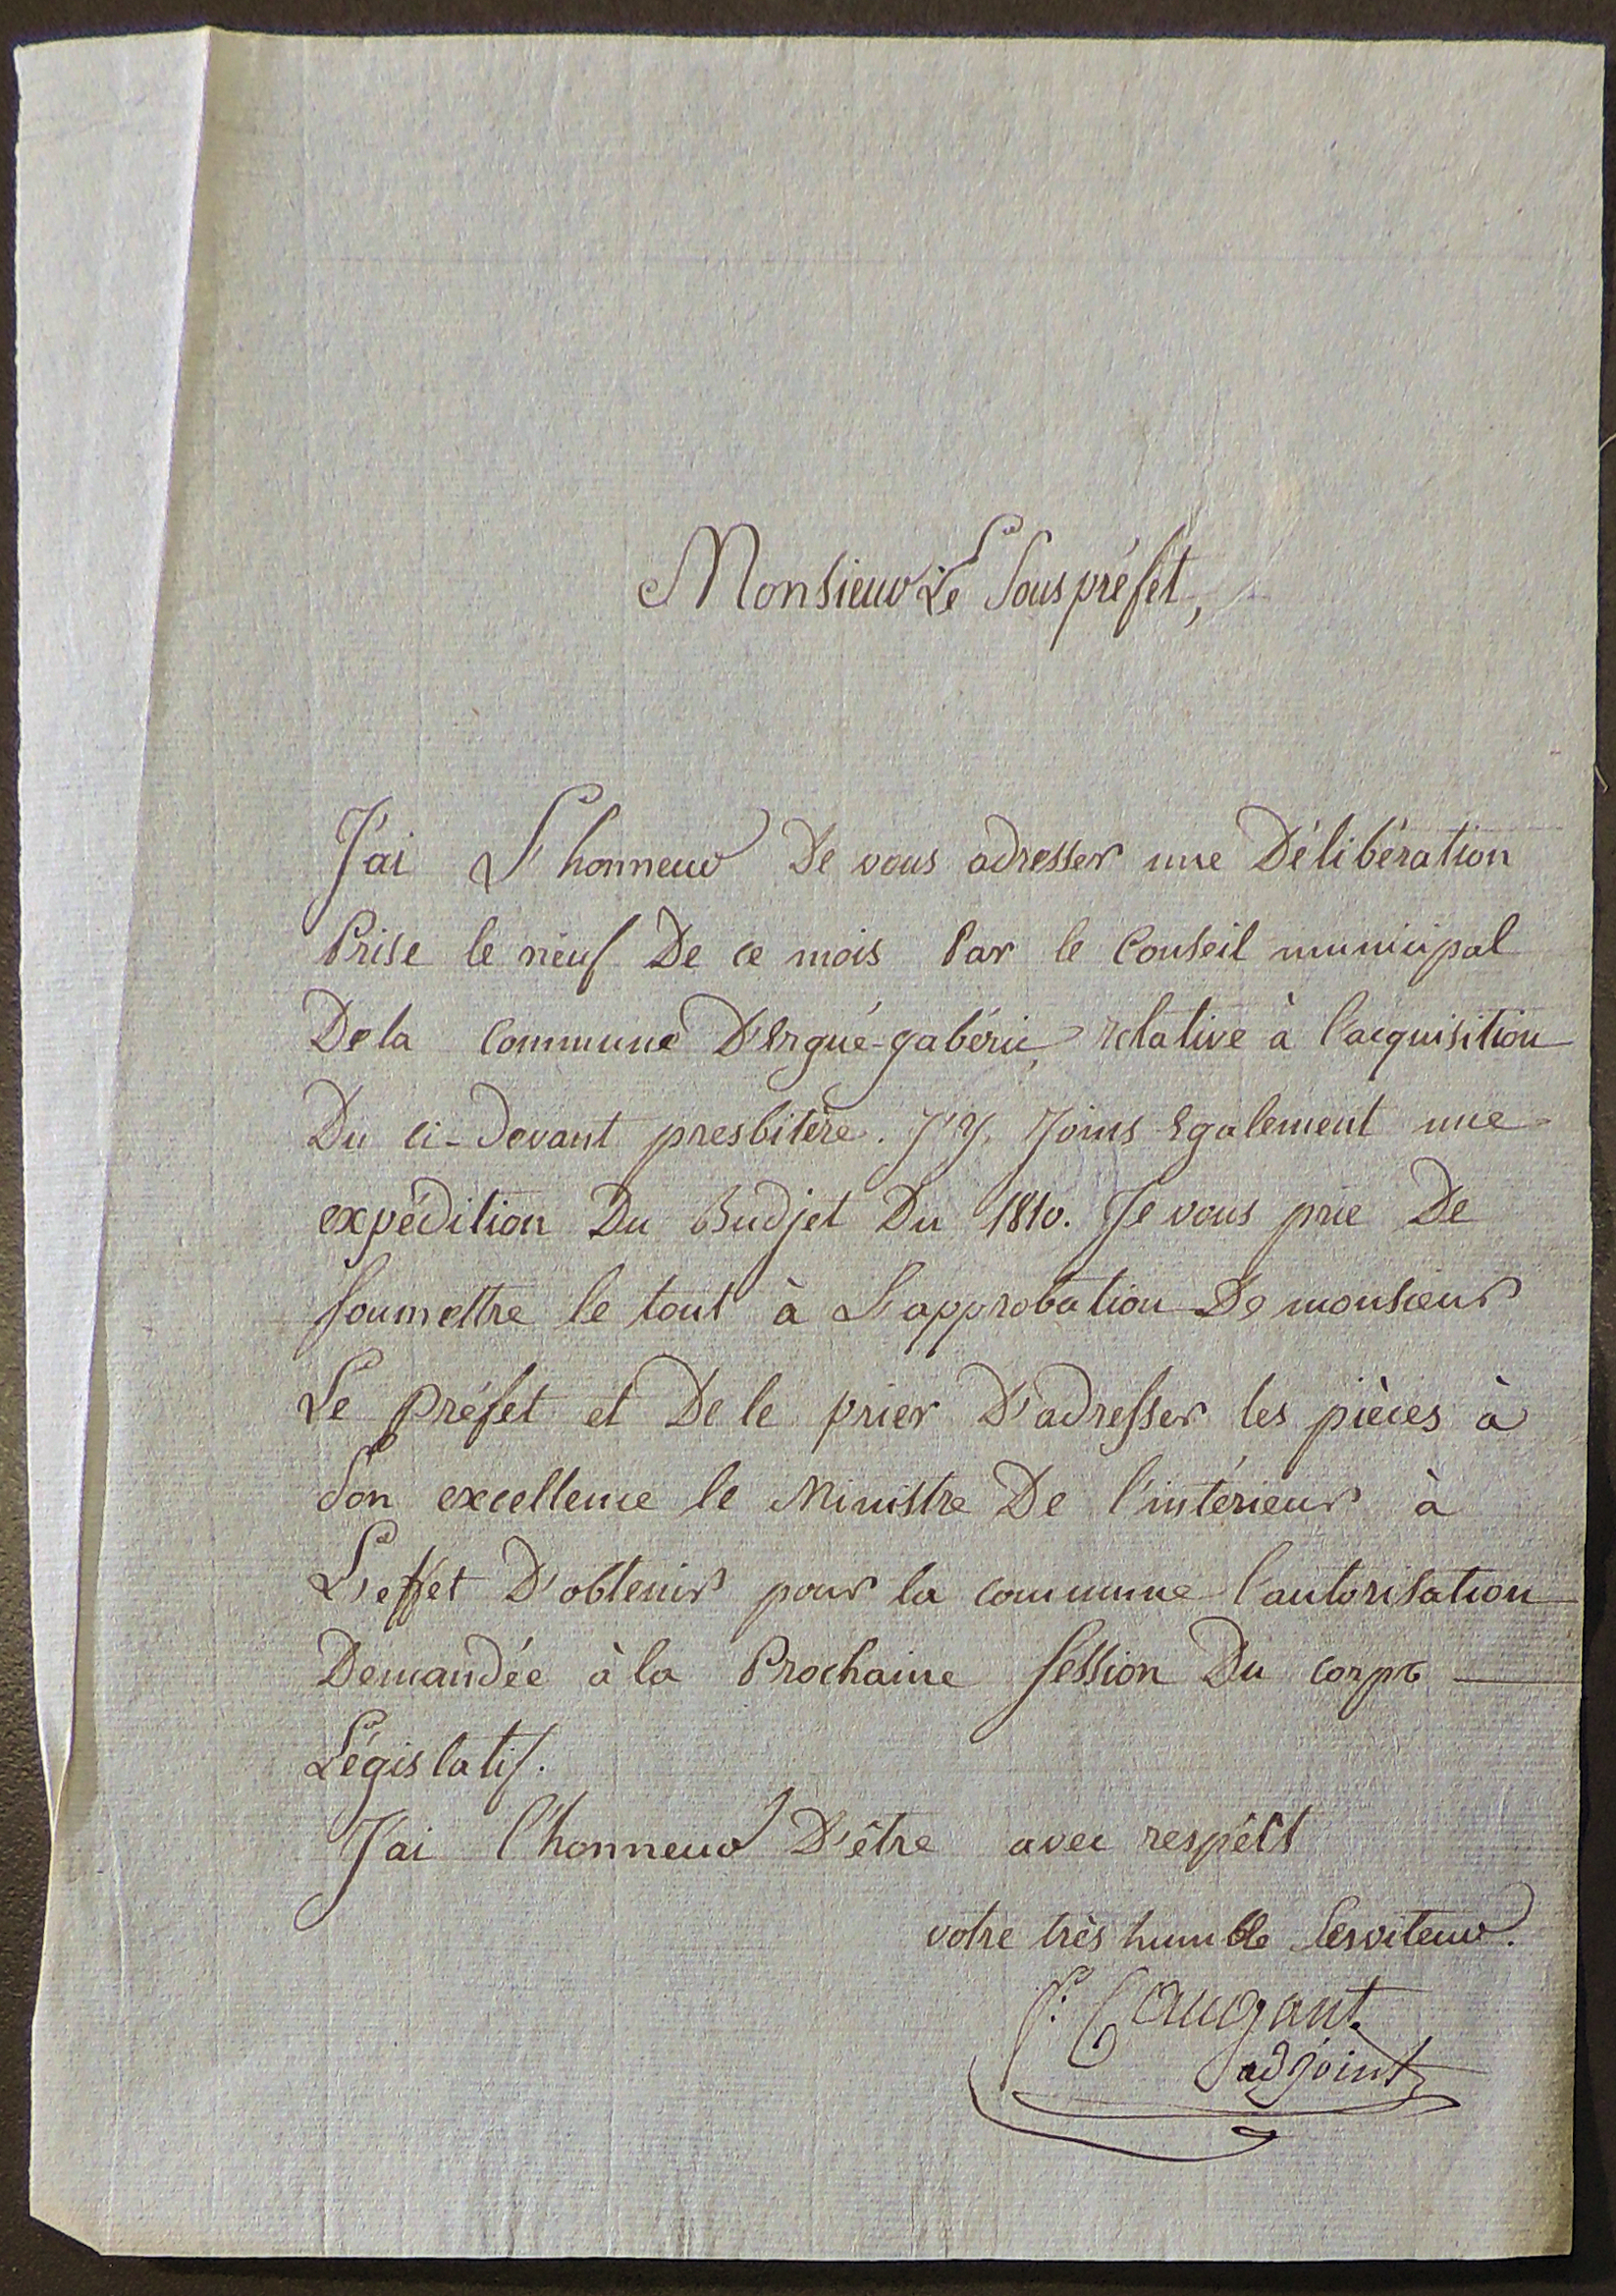 Monsieur Le Souspréfet,
J'ai L'honneur De vous adresser une Délibération
Prise le neuf De ce mois Par le Conseil municipal
De la Commune D'Ergué-gabéric, relative à l'acquisition
Du ci-devant presbitère. J'y Joins Egalement une
expédition Du Budjet Du 1810. Je vous prie De
soumettre le tout à L'approbation De monsieur
Le préfet et De le prier D'adresser les pièces à
Son excellence le Ministre De l'intérieur à
L'effet D'obtenir pour la commune l'autorisation
Demandée à la Prochaine session Du corps
Législatif.
J'ai l'honneur D'être avec respect
votre très humble serviteur.
Caugant
adjoint